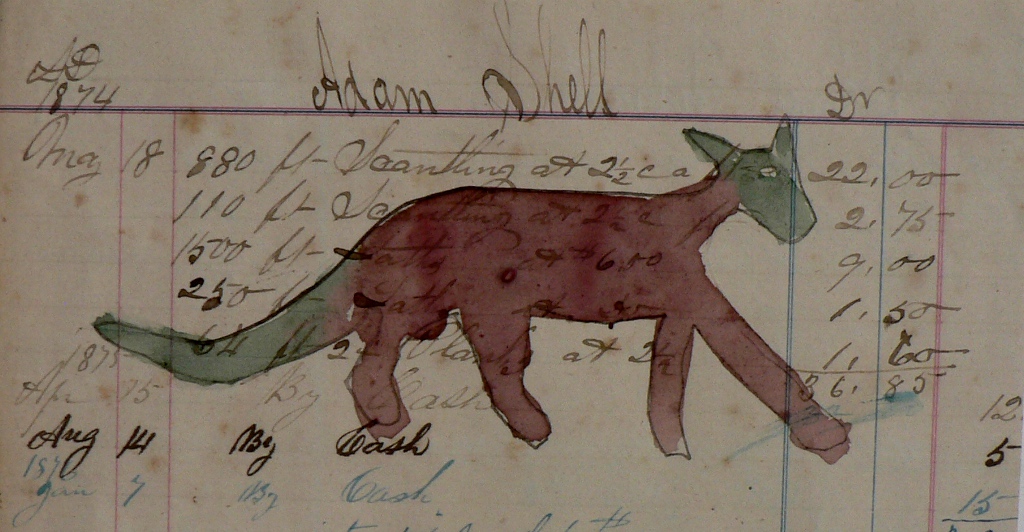 AD
1874 Adam Shell Dr
May 18 880 ft Scantling at 2½ c a 22,00
110 ft Scantling at 2½ c 2,75
1500 ft Lath at 6,00 9,00
250 Lath at 1,50
64 ft 2 Plank at 2½ 1,60
36,85
1875
Apr 15 By Cash 12
Aug 14 By Cash 5
187
Jan 7 By Cash 15